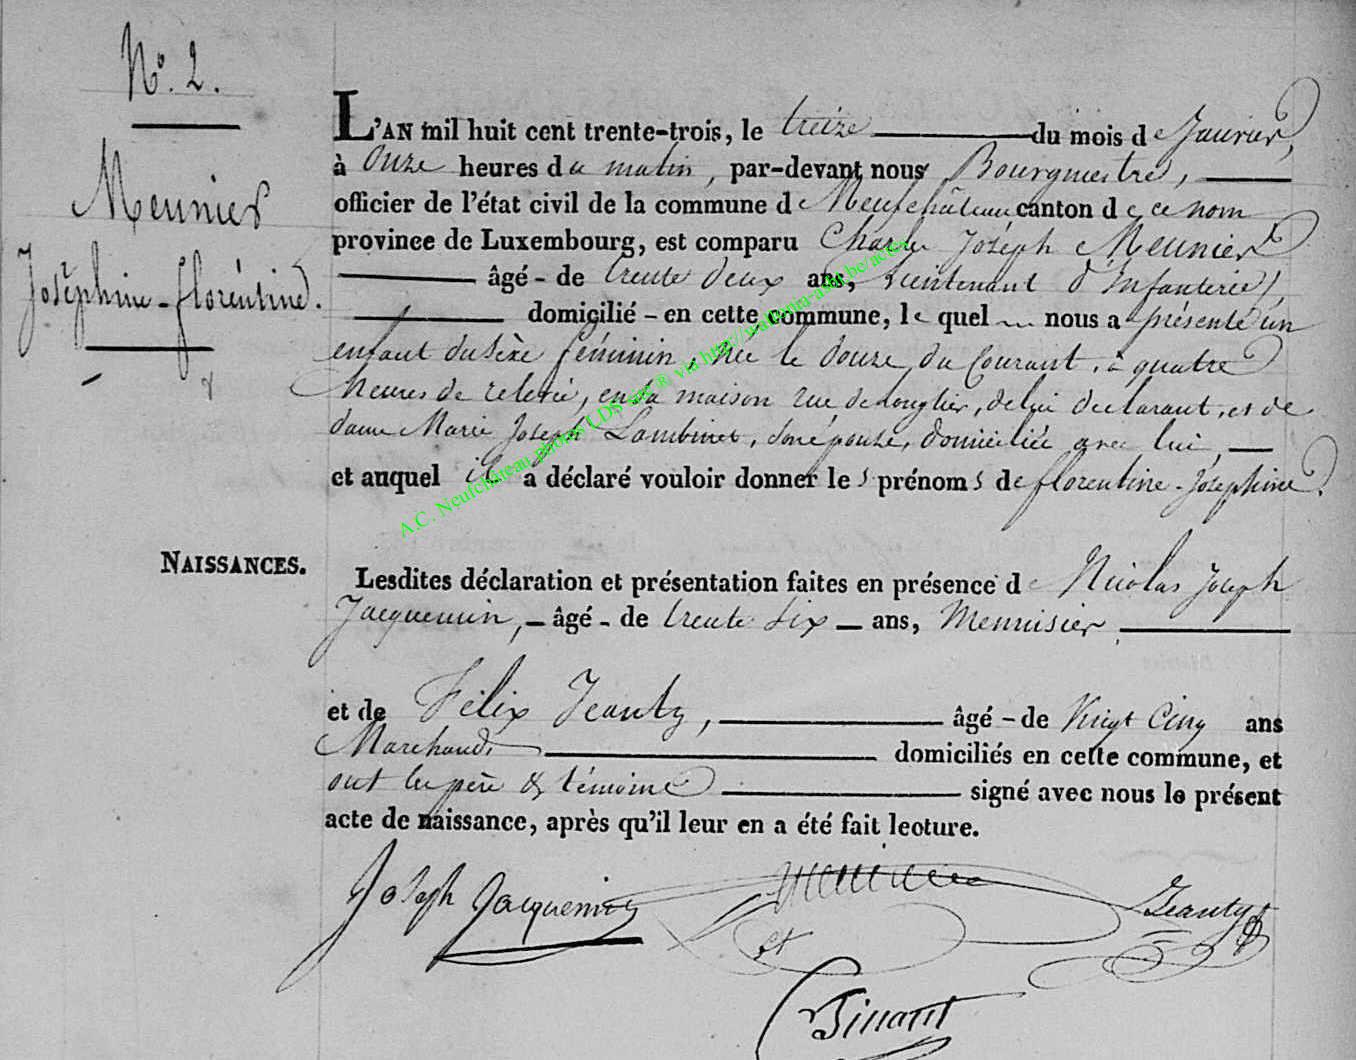 N°. 2.
Meunier
Joséphine-florentine.
L'AN mil huit cent trente-trois, le treize du mois de Janvier,
à Onze heures du matin, par-devant nous Bourgmestre,
officier de l'état civil de la commune de Neufchâteau canton de ce nom
province de Luxembourg, est comparu Charles Joseph Meunier
âgé - de trente deux ans, Lieutenant d'Infanterie,
domicilié - en cette commune, le quel nous a présenté un
enfant du sèxe féminin, née le douze du Courant, à quatre
heures de relevée, en sa maison rue de longlier, de lui declarant, et de
dame Marie Joseph Lambinet, son épouse, domiciliée avec lui,
et auquel il a déclaré vouloir donner les prénoms de florentine-Joséphine.
NAISSANCES.
Lesdites déclaration et présentation faites en présence de Nicolas Joseph
Jacquemin, - âgé - de trente six - ans, Menuisier
et de Félix Jeanty, âgé - de Vingt Cinq ans
Marchand, domiciliés en cette commune, et
ont les père & témoins signé avec nous le présent
acte de naissance, après qu'il leur en a été fait lecture.
Joseph Jacquemin Meunier Jeanty
A.C. Neufchâteau photos LDS site ® via http://wallonia-asbl.be/actes